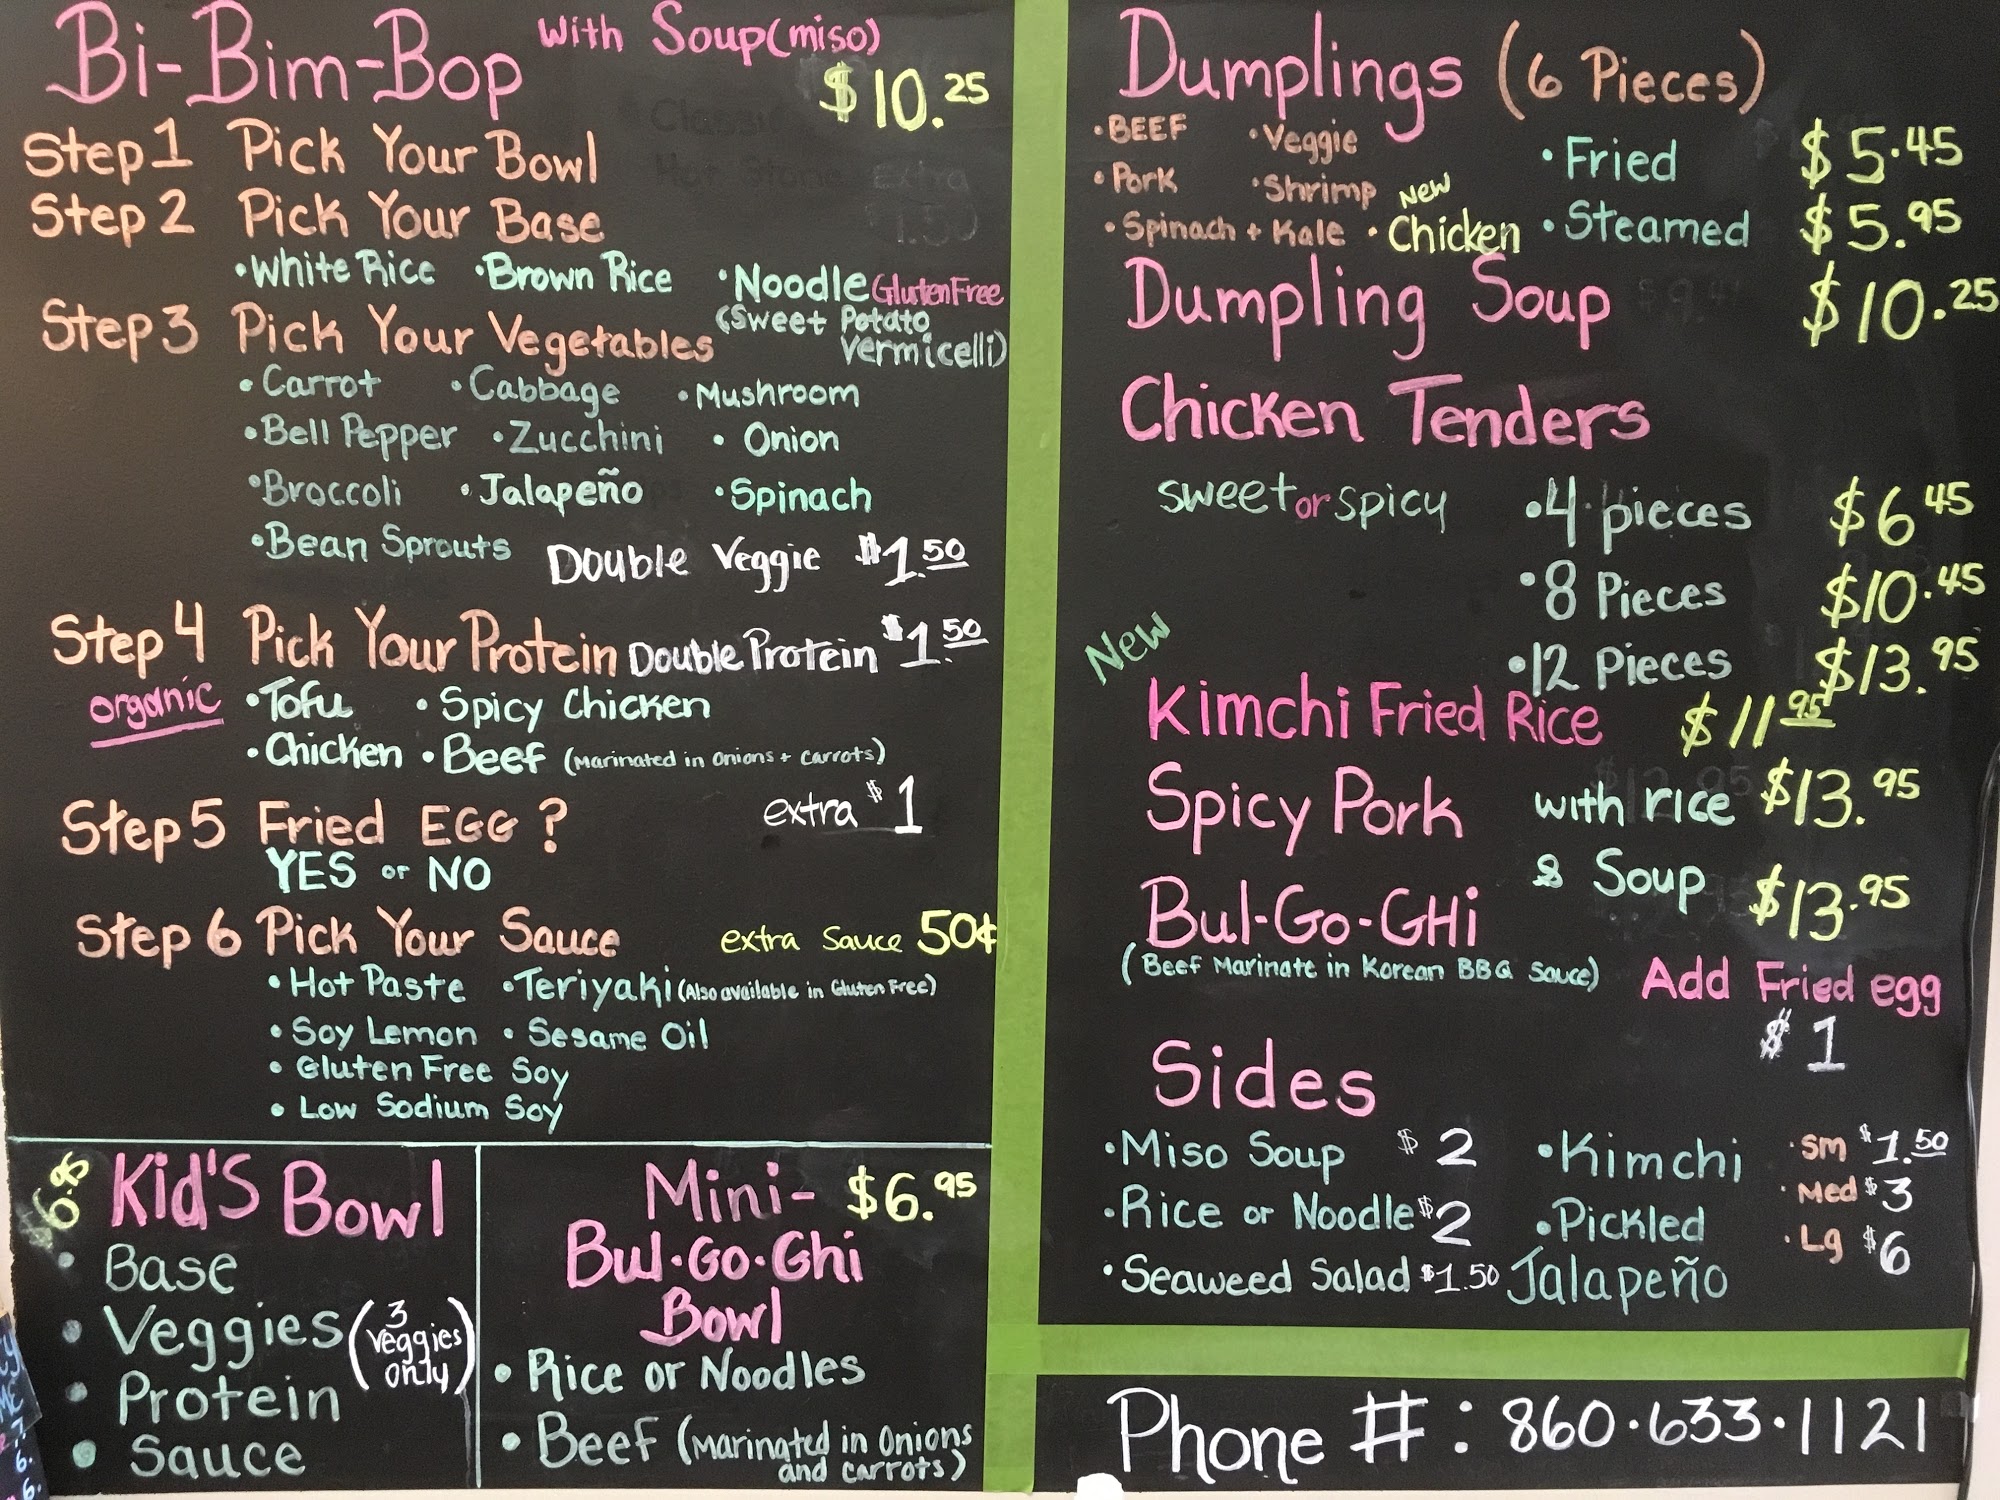 Bi-Bim-Bop with Soup(miso)
$10.25
Step 1 Pick Your Bowl
Step 2 Pick Your Base
•White Rice •Brown Rice •Noodle Gluten Free
(Sweet Potato
Vermicelli)
Step 3 Pick Your Vegetables
•Carrot •Cabbage •Mushroom
•Bell Pepper •Zucchini •Onion
•Broccoli •Jalapeño •Spinach
•Bean Sprouts Double Veggie $1.50
Step 4 Pick Your Protein Double Protein $1.50
organic •Tofu •Spicy Chicken
•Chicken •Beef (Marinated in Onions + Carrots)
Step 5 Fried EGG? extra $1
YES or NO
Step 6 Pick Your Sauce extra Sauce 50¢
•Hot Paste •Teriyaki (Also available in Gluten Free)
•Soy Lemon •Sesame Oil
•Gluten Free Soy
•Low Sodium Soy
6.95 Kid'S Bowl
•Base
•Veggies (3 Veggies only)
•Protein
•Sauce
Mini- $6.95
Bul-Go-Ghi
Bowl
•Rice or Noodles
•Beef (Marinated in Onions
and Carrots)
Dumplings (6 Pieces)
•BEEF •Veggie •Fried $5.45
•Pork •Shrimp New
•Spinach + Kale •Chicken •Steamed $5.95
Dumpling Soup $10.25
Chicken Tenders
sweet or spicy •4 pieces $6.45
•8 Pieces $10.45
•12 Pieces $13.95
New
Kimchi Fried Rice $11.95
Spicy Pork with rice $13.95
& Soup
Bul-Go-GHi $13.95
(Beef Marinate in Korean BBQ Sauce) Add Fried egg
$1
Sides
•Miso Soup $2 •Kimchi •Sm $1.50
•Rice or Noodle $2 •Pickled •Med $3
•Seaweed Salad $1.50 Jalapeño •Lg $6
Phone #: 860.633.1121